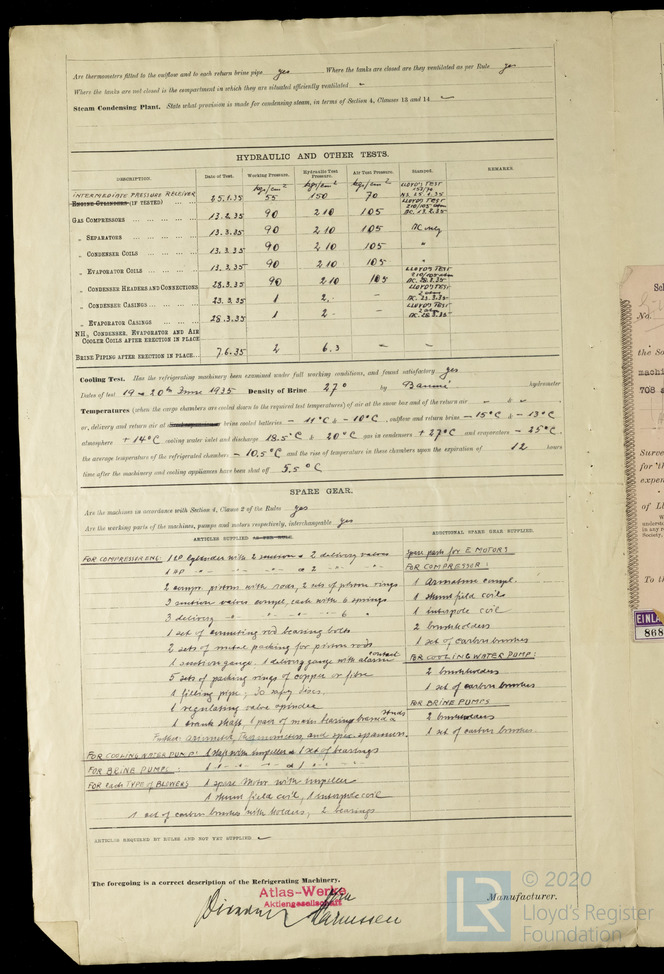 Are thermometers fitted to the outflow and to each return brine pipe yes Where the tanks are closed are they ventilated as per Rule yes
Where the tanks are not closed is the compartment in which they are situated efficiently ventilated -
Steam Condensing Plant. State what provision is made for condensing steam, in terms of Section 4, Clauses 13 and 14
HYDRAULIC AND OTHER TESTS.
DESCRIPTION. Date of Test. Working Pressure. Hydraulic Test Pressure. Air Test Pressure. Stamped. REMARKS.
kgs/cm² kgs/cm² kgs/cm²
INTERMEDIATE PRESSURE RECEIVER
ENGINE CYLINDERS (IF TESTED) 25.1.35 55 150 70 LLOYD'S TEST
GAS COMPRESSORS 13.2.35 90 210 105 LLOYD'S TEST
„ SEPARATORS 13.3.35 90 210 105
„ CONDENSER COILS 13.3.35 90 210 105 "
„ EVAPORATOR COILS 13.3.35 90 210 105 "
„ CONDENSER HEADERS AND CONNECTIONS 28.3.35 90 210 105 LLOYD'S TEST
„ CONDENSER CASINGS 23.3.35 1 2.- - LLOYD'S TEST
„ EVAPORATOR CASINGS 28.3.35 1 2 - - LLOYD'S TEST
NH₃ CONDENSER, EVAPORATOR AND AIR COOLER COILS AFTER ERECTION IN PLACE
BRINE PIPING AFTER ERECTION IN PLACE 7.6.35 2 6.3 - -
Cooling Test. Has the refrigerating machinery been examined under full working conditions, and found satisfactory yes
Dates of test 19 - 20th June 1935 Density of Brine 27° by Baumé hydrometer
Temperatures (when the cargo chambers are cooled down to the required test temperatures) of air at the snow box and of the return air - & -
or, delivery and return air at brine cooled batteries - 11°C & - 10°C, outflow and return brine - 15°C & - 13°C
atmosphere + 14°C cooling water inlet and discharge 18.5°C & 20°C gas in condensers + 27°C and evaporators - 25°C,
the average temperature of the refrigerated chambers - 10,5°C and the rise of temperature in these chambers upon the expiration of 12 hours
time after the machinery and cooling appliances have been shut off 5,5°C
SPARE GEAR.
Are the machines in accordance with Section 4, Clause 2 of the Rules yes
Are the working parts of the machines, pumps and motors respectively, interchangeable yes
ARTICLES SUPPLIED AS PER RULE. ADDITIONAL SPARE GEAR SUPPLIED.
FOR COMPRESSOR ENG: 1 LP cylinder with 2 suction & 2 delivery valves
1 HP " " " & 2 " "
2 compr. pistons with rods, 2 sets of piston rings
3 suction valves compl. each with 6 springs
3 delivery " " " 6 "
1 set of connecting rod bearing bolts
2 sets of metal packing for piston rods
1 suction gauge, 1 delivery gauge with alarm contact
5 sets of packing rings of copper or fibre
1 filling pipe, 20 safety discs.
1 regulating valve spindle
1 crank shaft, 1 pair of main bearing brasses & studs
Further: and
FOR COOLING WATER PUMP: 1 shaft with impeller & 1 set of bearings
FOR BRINE PUMPS: 1 " " " & 1 " "
FOR each TYPE of BLOWER: 1 spare Motor with impeller
1 shunt field coil, 1 interpole coil
1 set of carbon brushes with holders, 2 bearings
Spare parts for E MOTORS
FOR COMPRESSOR:
1 Armature compl.
1 shunt field coils
1 interpole coil
2 brushholders
1 set of carbon brushes
FOR COOLING WATER PUMP:
2 brushholders
1 set of carbon brushes
FOR BRINE PUMPS
2 brushholders
1 set of carbon brushes.
ARTICLES REQUIRED BY RULES AND NOT YET SUPPLIED
The foregoing is a correct description of the Refrigerating Machinery.
Atlas-Werke
Aktiengesellschaft
Manufacturer.
LR
© 2020
Lloyd's Register
Foundation
No.
the So
machi
708 a
Surve
for th
expen
of Ll
To th
EINLA
868